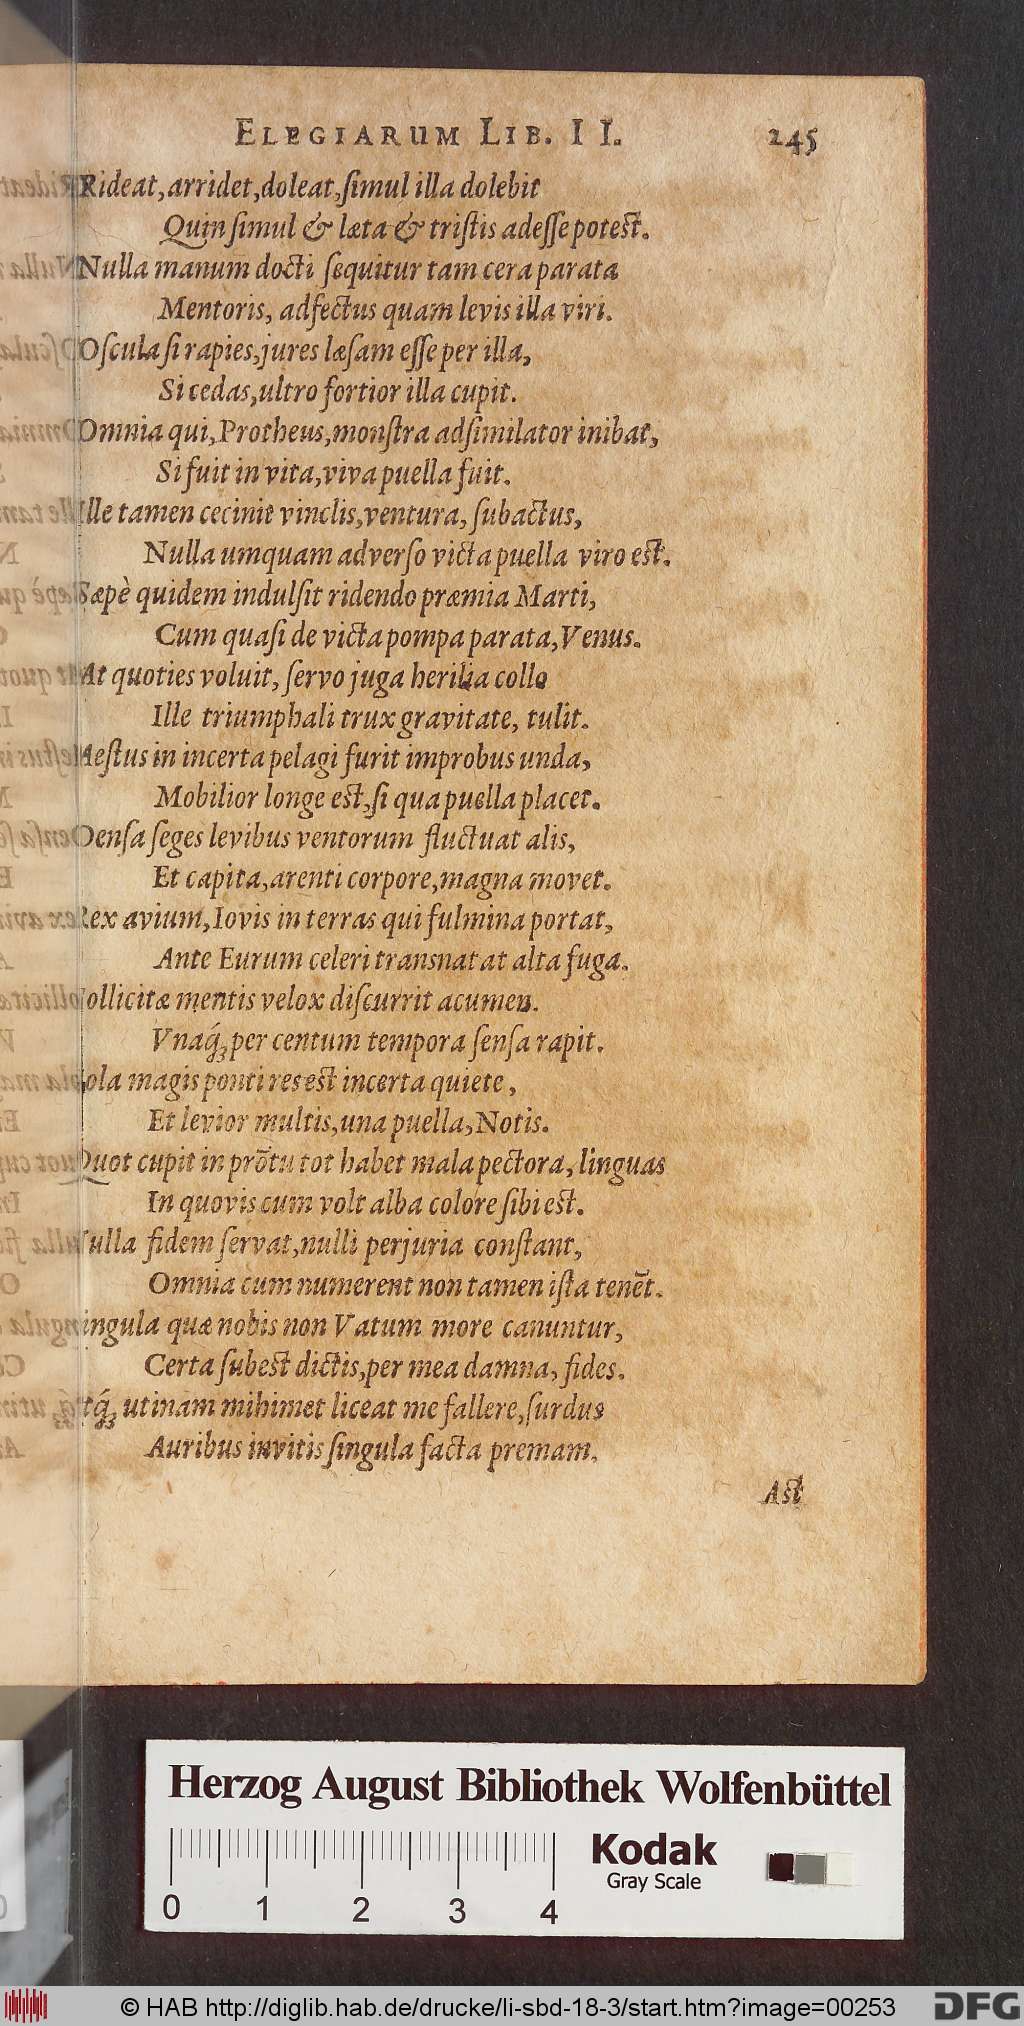 ELEGIARUM LIB. II. 245
Rideat, arridet, doleat, ſimul illa dolebit
Quin ſimul & læta & triſtis adeſſe poteſt.
Nulla manum docti ſequitur tam cera parata
Mentoris, adfectus quam levis illa viri.
Oſcula ſi rapies, jures læſam eſſe per illa,
Si cedas, ultro fortior illa cupit.
Omnia qui, Protheus, monſtra adſimilator inibat,
Si fuit in vita, viva puella fuit.
Ille tamen cecinit vinclis, ventura, ſubactus,
Nulla umquam adverſo victa puella viro eſt.
Sæpè quidem indulſit ridendo præmia Marti,
Cum quaſi de victa pompa parata, Venus.
At quoties voluit, ſervo juga herilia collo
Ille triumphali trux gravitate, tulit.
Aeſtus in incerta pelagi furit improbus unda,
Mobilior longe eſt, ſi qua puella placet.
Denſa ſeges levibus ventorum fluctuat alis,
Et capita, arenti corpore, magna movet.
Rex avium, Iovis in terras qui fulmina portat,
Ante Eurum celeri transnatat alta fuga.
Sollicitæ mentis velox diſcurrit acumen.
Vnaq́ꝫ per centum tempora ſenſa rapit.
Sola magis ponti res eſt incerta quiete,
Et levior multis, una puella, Notis.
Quot cupit in prõtu tot habet mala pectora, linguas
In quovis cum volt alba colore ſibi eſt.
Nulla fidem ſervat, nulli perjuria conſtant,
Omnia cum numerent non tamen iſta tenẽt.
Singula quæ nobis non Vatum more canuntur,
Certa ſubeſt dictis, per mea damna, fides.
Atq́ꝫ utinam mihimet liceat me fallere, ſurdus
Auribus invitis ſingula facta premam.
Aſt
Herzog August Bibliothek Wolfenbüttel
Kodak
Gray Scale
0 1 2 3 4
© HAB http://diglib.hab.de/drucke/li-sbd-18-3/start.htm?image=00253 DFG